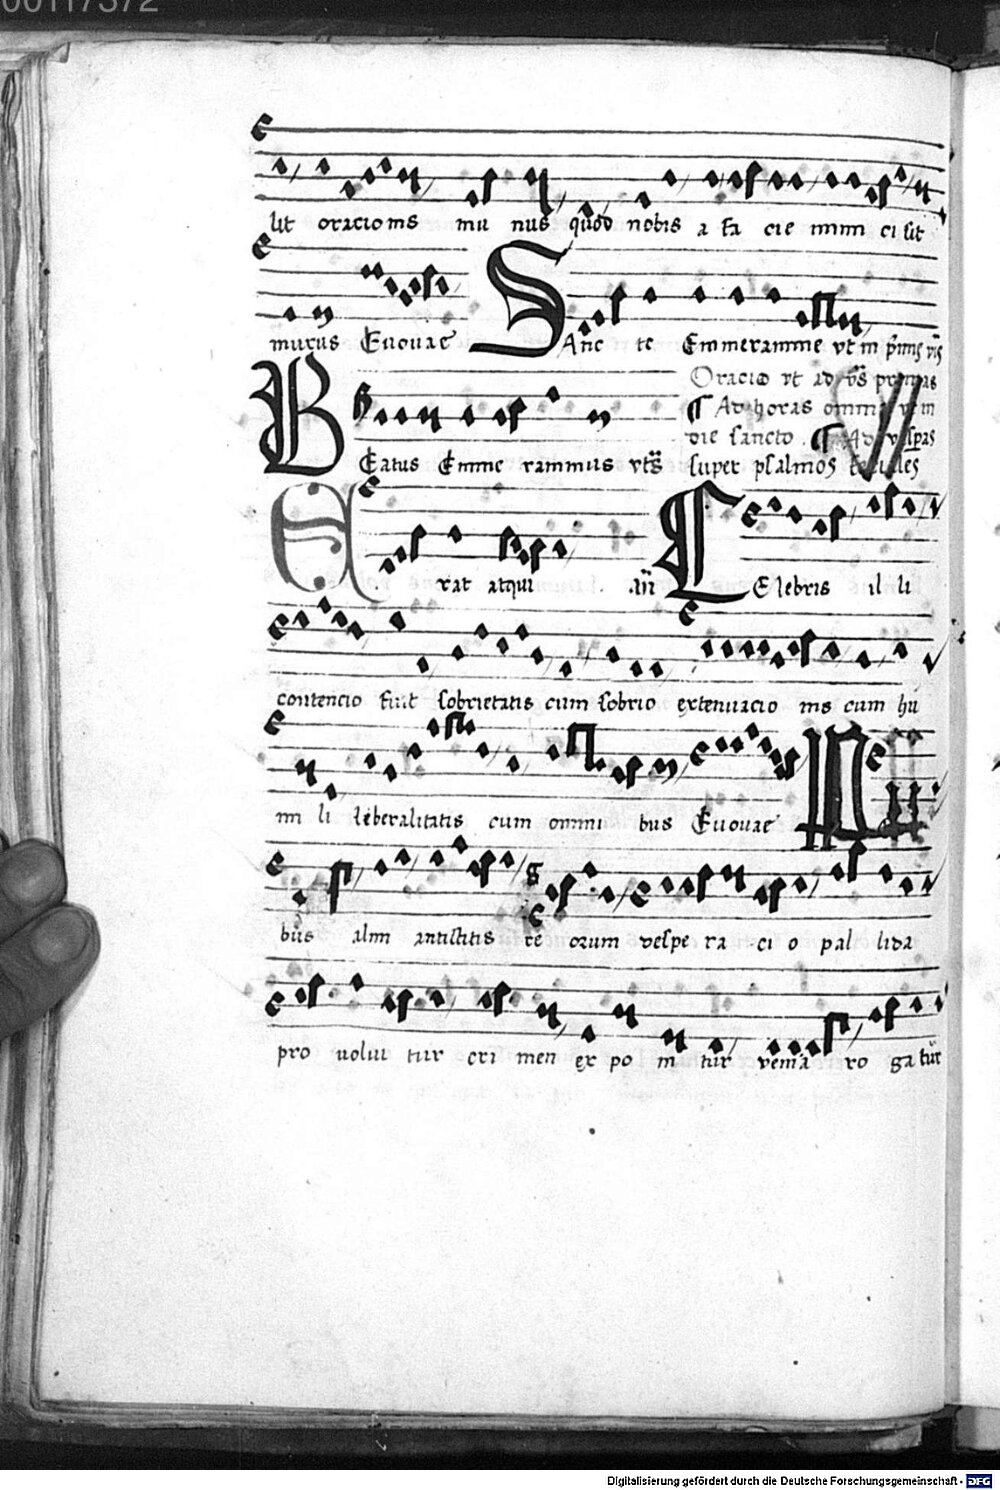 00117372
lit oracionis mu nus quod nobis a fa cie inimi ci sit
murus Euouae SAnc te Emmeramme vt in
Oracio vt ad
¶ Ad horas omnia vt in
die sancto . ¶ Ad vespas
BEatus Emme rammus super psalmos feriales
Erat atqui CElebris il li
contencio fuit sobrietatis cum sobrio extenuacio nis cum hu
mi li liberalitatis cum omni bus Euouae
bus almi antistitis re orum vespe ra ci o pal lida
pro uolui tur cri men ex po ni tur venia ro ga tur
Digitalisierung gefördert durch die Deutsche Forschungsgemeinschaft - DFG